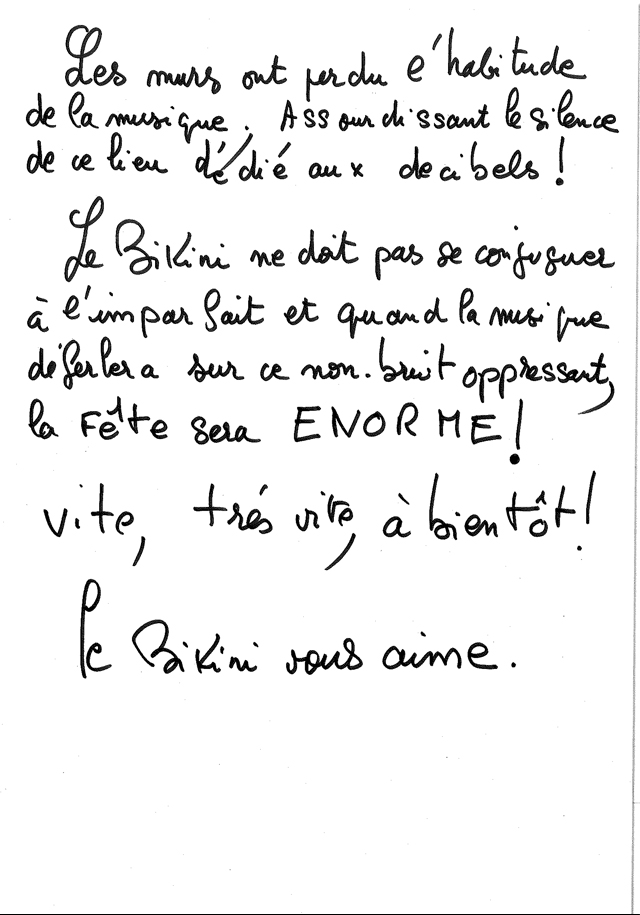 Les murs ont perdu l'habitude
de la musique. Assourdissant le silence
de ce lieu dédié aux decibels !
Le Bikini ne doit pas se conjuguer
à l'imparfait et quand la musique
déferlera sur ce non-bruit oppressant,
la Fête sera ENORME !
Vite, trés vite, à bientôt !
Le Bikini vous aime.